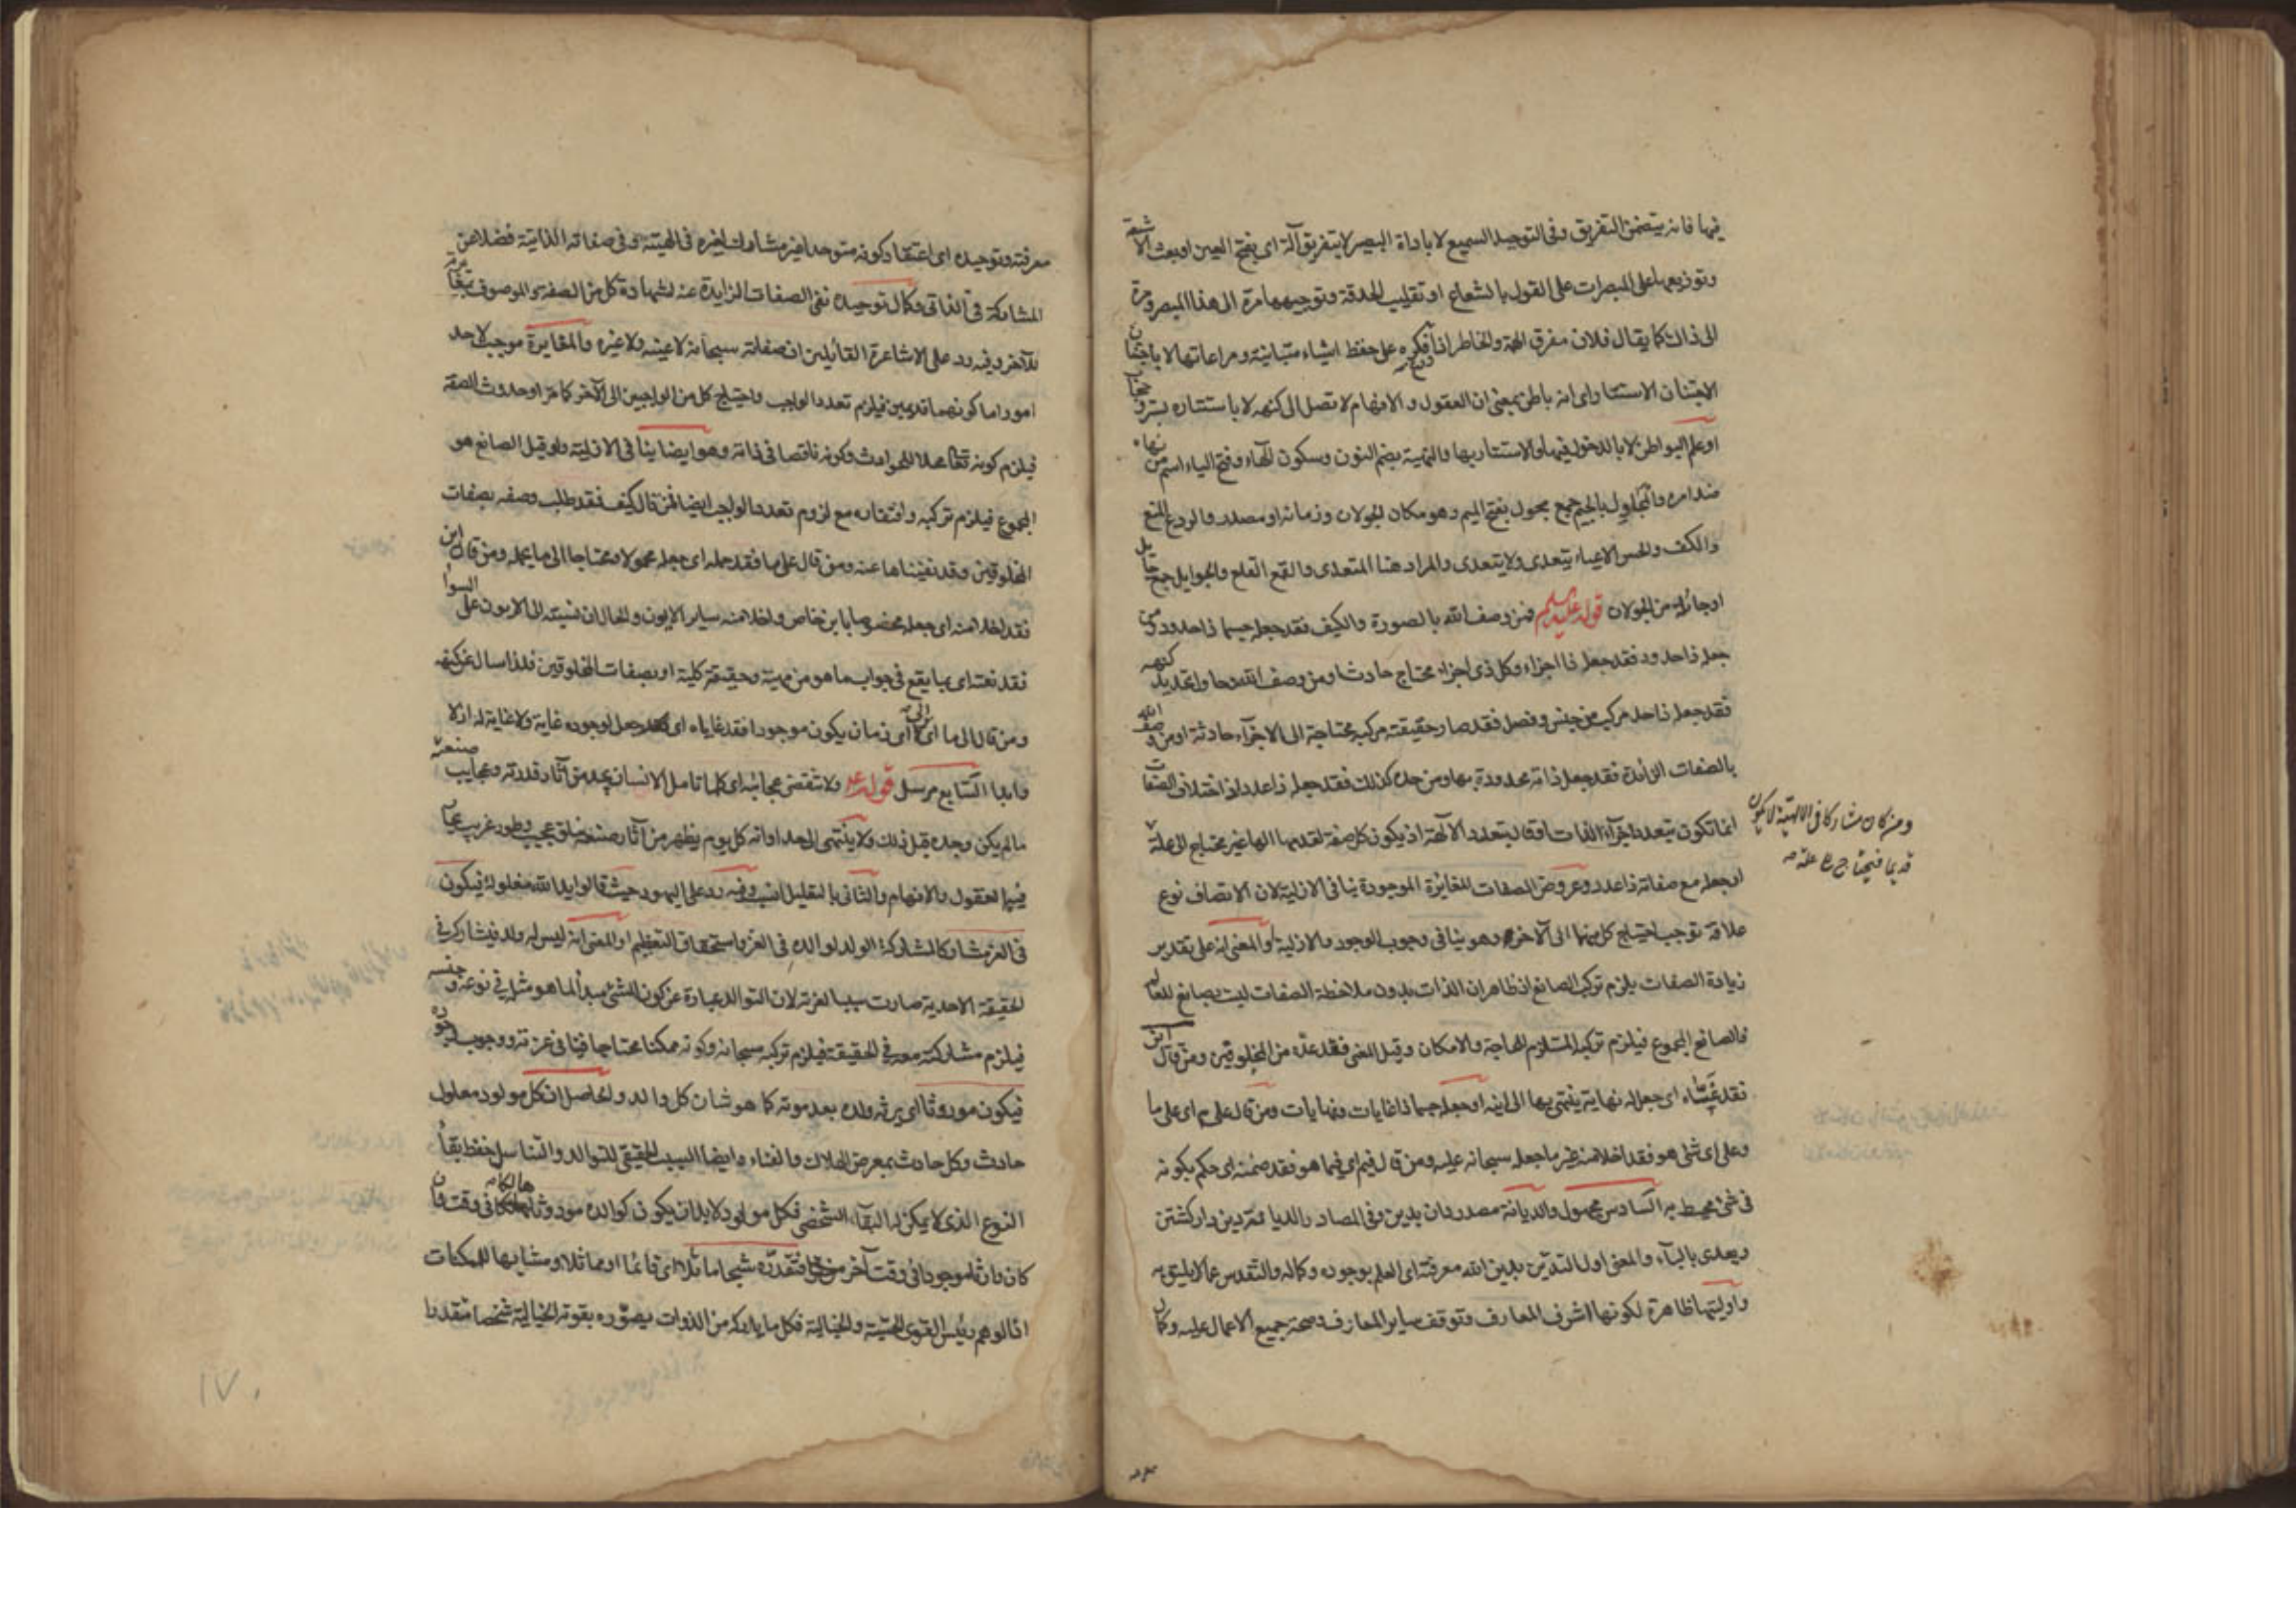 فيها فانه يتضمن التفريق وفى التوحيد السميع لا باداة البصير لا بتفريق آلة اى بفتح العين او بعث الاشعة
وتوزيعها على المبصرات على القول بالشعاع او تقليب الحدقة وتوجيهها مرة الى هذا المبصر ومرة
الى ذاك كما يقال فلان مفرق الهمة والخاطر اذا فكره على حفظ اشياء متباينة ومراعاتها لا باجتنان
الاجتنان الاستتار اى انه باطن بمعنى ان العقول والافهام لا تصل الى كنهه لا باستتاره بستر وحجاب
او علم البواطن لا بالدخول فيها والاستتار بها والنهية بضم النون وسكون الهاء وفتح الياء اسم من نهاه
ضد امره والمجاول بالجيم جمع مجول بفتح الميم وهو مكان الجولان وزمانه او مصدر والردع المنع
والكف والحسر الاعياء يتعدى ولا يتعدى والمراد هنا المتعدى والقمع القلع والجوايل جمع جايل
او جائلة من الجولان قوله عليه السلم فمن وصف الله بالصورة والكيف فقد جعله جسما ذا حدود ومن
جعله ذا حدود فقد جعله ذا اجزاء وكل ذى اجزاء محتاج حادث او من وصف الله وحاول تحديد كنهه
فقد جعله ذا حد مركب من جنس وفصل فقد صار حقيقته مركبة محتاجة الى الاجزاء حادثة او من وصف الله
بالصفات الزائدة فقد جعل ذاته محدودة بها ومن حده كذلك فقد جعله ذا عدد اذ اختلاف الصفات
انما تكون بتعدد اجزاء الذات او قال بتعدد الآلهة اذ يكون كل صفة لقدمها الها غير محتاج الى علة
ومن كان مشاركا فى الالهية لا يكون
قديما فيحتاج الى علة صح
او جعله مع صفاته ذا عدد وعروض الصفات المغايرة الموجودة ينافى الازلية لان الاتصاف نوع
علاقة توجب احتياج كل منهما الى الآخر وهو ينافى وجوب الوجود والازلية او المعنى انه على تقدير
زيادة الصفات يلزم تركب الصانع اذ ظاهر ان الذات بدون ملاحظة الصفات ليست بصانع للعالم
فالصانع المجموع فيلزم تركبه المستلزم للحاجة والامكان وقيل المعنى فقد عده من المخلوقين ومن قال اين
فقد غيّاه اى جعل له نهاية ينتهى بها الى اينه او جعله جسما ذا غايات ونهايات ومن قال على م اى على ما
وعلى اى شئ هو فقد اخلا منه غير ما جعله سبحانه عليه ومن قال فيم اى فيما هو فقد ضمنه اى حكم بكونه
فى شئ محيط به السادس مجهول والديانة مصدر دان يدين وفى المصادر الديانة دين دار گشتن
ويعدى بالباء والمعنى اول التدين بدين الله معرفته اى العلم بوجوده وكماله والتقدس عما لا يليق به
واوليتها ظاهرة لكونها اشرف المعارف وتوقف ساير المعارف وصحة جميع الاعمال عليه وكمال
معرفته وتوحيده اى اعتقاد كونه متوحدا غير مشارك لغيره فى الهيته وفى صفاته الذاتية فضلا عن
المشاركة فى الذاتى وكمال توحيده نفى الصفات الزايدة عنه لشهادة كل من الصفة والموصوف بمغايرته
للآخر وفيه رد على الاشاعرة القائلين ان صفاته سبحانه لا عينه ولا غيره والمغايرة موجبة لاحد
امور اما كونهما قديمين فيلزم تعدد الواجب واحتياج كل من الواجبين الى الآخر كما مر او حدوث الصفة
فيلزم كونه تعالى محلا للحوادث وكونه ناقصا فى ذاته وهو ايضا ينافى الازلية ولو قيل الصانع هو
المجموع فيلزم تركبه وافتقاره مع لزوم تعدد الواجب ايضا فمن قال كيف فقد طلب وصفه بصفات
المخلوقين وقد نفيناها عنه ومن قال على ما فقد حمله اى جعله محمولا ومحتاجا الى ما يحمله ومن قال اين
فقد اخلا منه اى جعله مخصوصا باين خاص واخلا منه ساير الايون والحال ان نسبته الى الايون على السواء
فقد نعته اى بما يقع فى جواب ما هو من مهية وحقيقة كلية او بصفات المخلوقين فلذا سال عن كنهه
ومن قال الى ما اى الى اى زمان يكون موجودا فقد غاياه اى جعل لوجوده غاية ولا غاية له ازلا
وابدا السابع مرسل قوله ع ولا تنقضى عجائبه اى كلما تامل الانسان يجد من آثار قدرته وعجايب صنعته
ما لم يكن وجده قبل ذلك ولا ينتهى الى حد او انه كل يوم يظهر من آثار صنعه خلق عجيب وطور غريب
فيها العقول والافهام والثانى بالتعليل انسب وفيه رد على اليهود حيث قالوا يد الله مغلولة فيكون
فى العز مشاركا لمشاركة الولد لوالده فى العز واستحقاق التعظيم او المعنى انه ليس له ولد فيشاركه فى
الحقيقة الاحدية صارت سببا لعزته لان التوالد عبارة عن كون الشئ مبدأ لما هو مثله فى نوعه وجنسه
فيلزم مشاركته معه فى الحقيقة فيلزم تركبه سبحانه وكونه ممكنا محتاجا فينافى عزته ووجوب وجوده
فيكون موروثا اى يرثه ولده بعد موته كما هو شان كل والد والحاصل ان كل مولود معلول
حادث وكل حادث بمعرض الهلاك والفناء وايضا السبب الحقيقى للتوالد والتناسل حفظ بقاء
النوع الذى لا يمكن له البقاء الشخصى فكل مولود لا بد ان يكون كوالده موروثا هالكا فى وقت وان
كان وارثا موجودا فى وقت آخر فتقدّره شبحا ماثلا اى قائما او مماثلا ومشابها للممكنات
اذ الوهم رئيس القوى الحسية والخيالية فكل ما يدركه من الذوات يصوّره بقوته الخيالية شخصا متقدرا
١٧٠